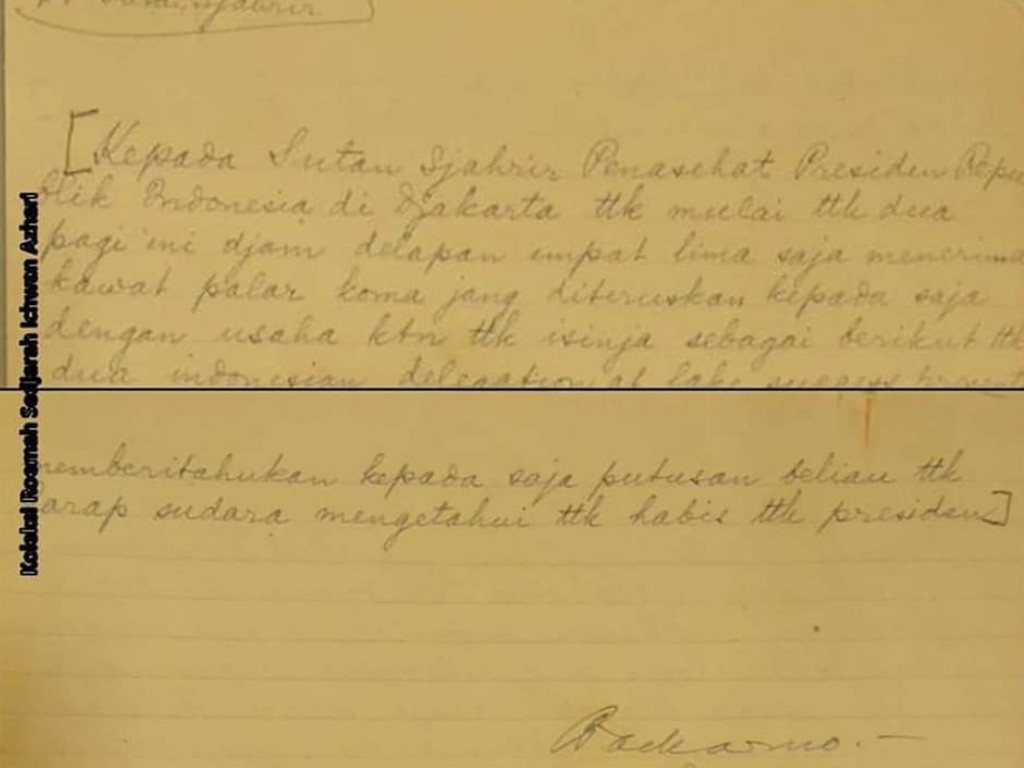 Sjahrir
[Kepada Sutan Sjahrir Penasehat Presiden Repu
blik Indonesia di Djakarta ttk mulai ttk dua
pagi ini djam delapan empat lima saja menerima
kawat palar koma jang diteruskan kepada saja
dengan usaha ktn ttk isinja sebagai berikut ttk
dua indonesian delegation at lake success
memberitahukan kepada saja putusan beliau ttk
arap sudara mengetahui ttk habis ttk presiden]
Soekarno.-
Koleksi Roemah Sedjarah Ichwan Azhari